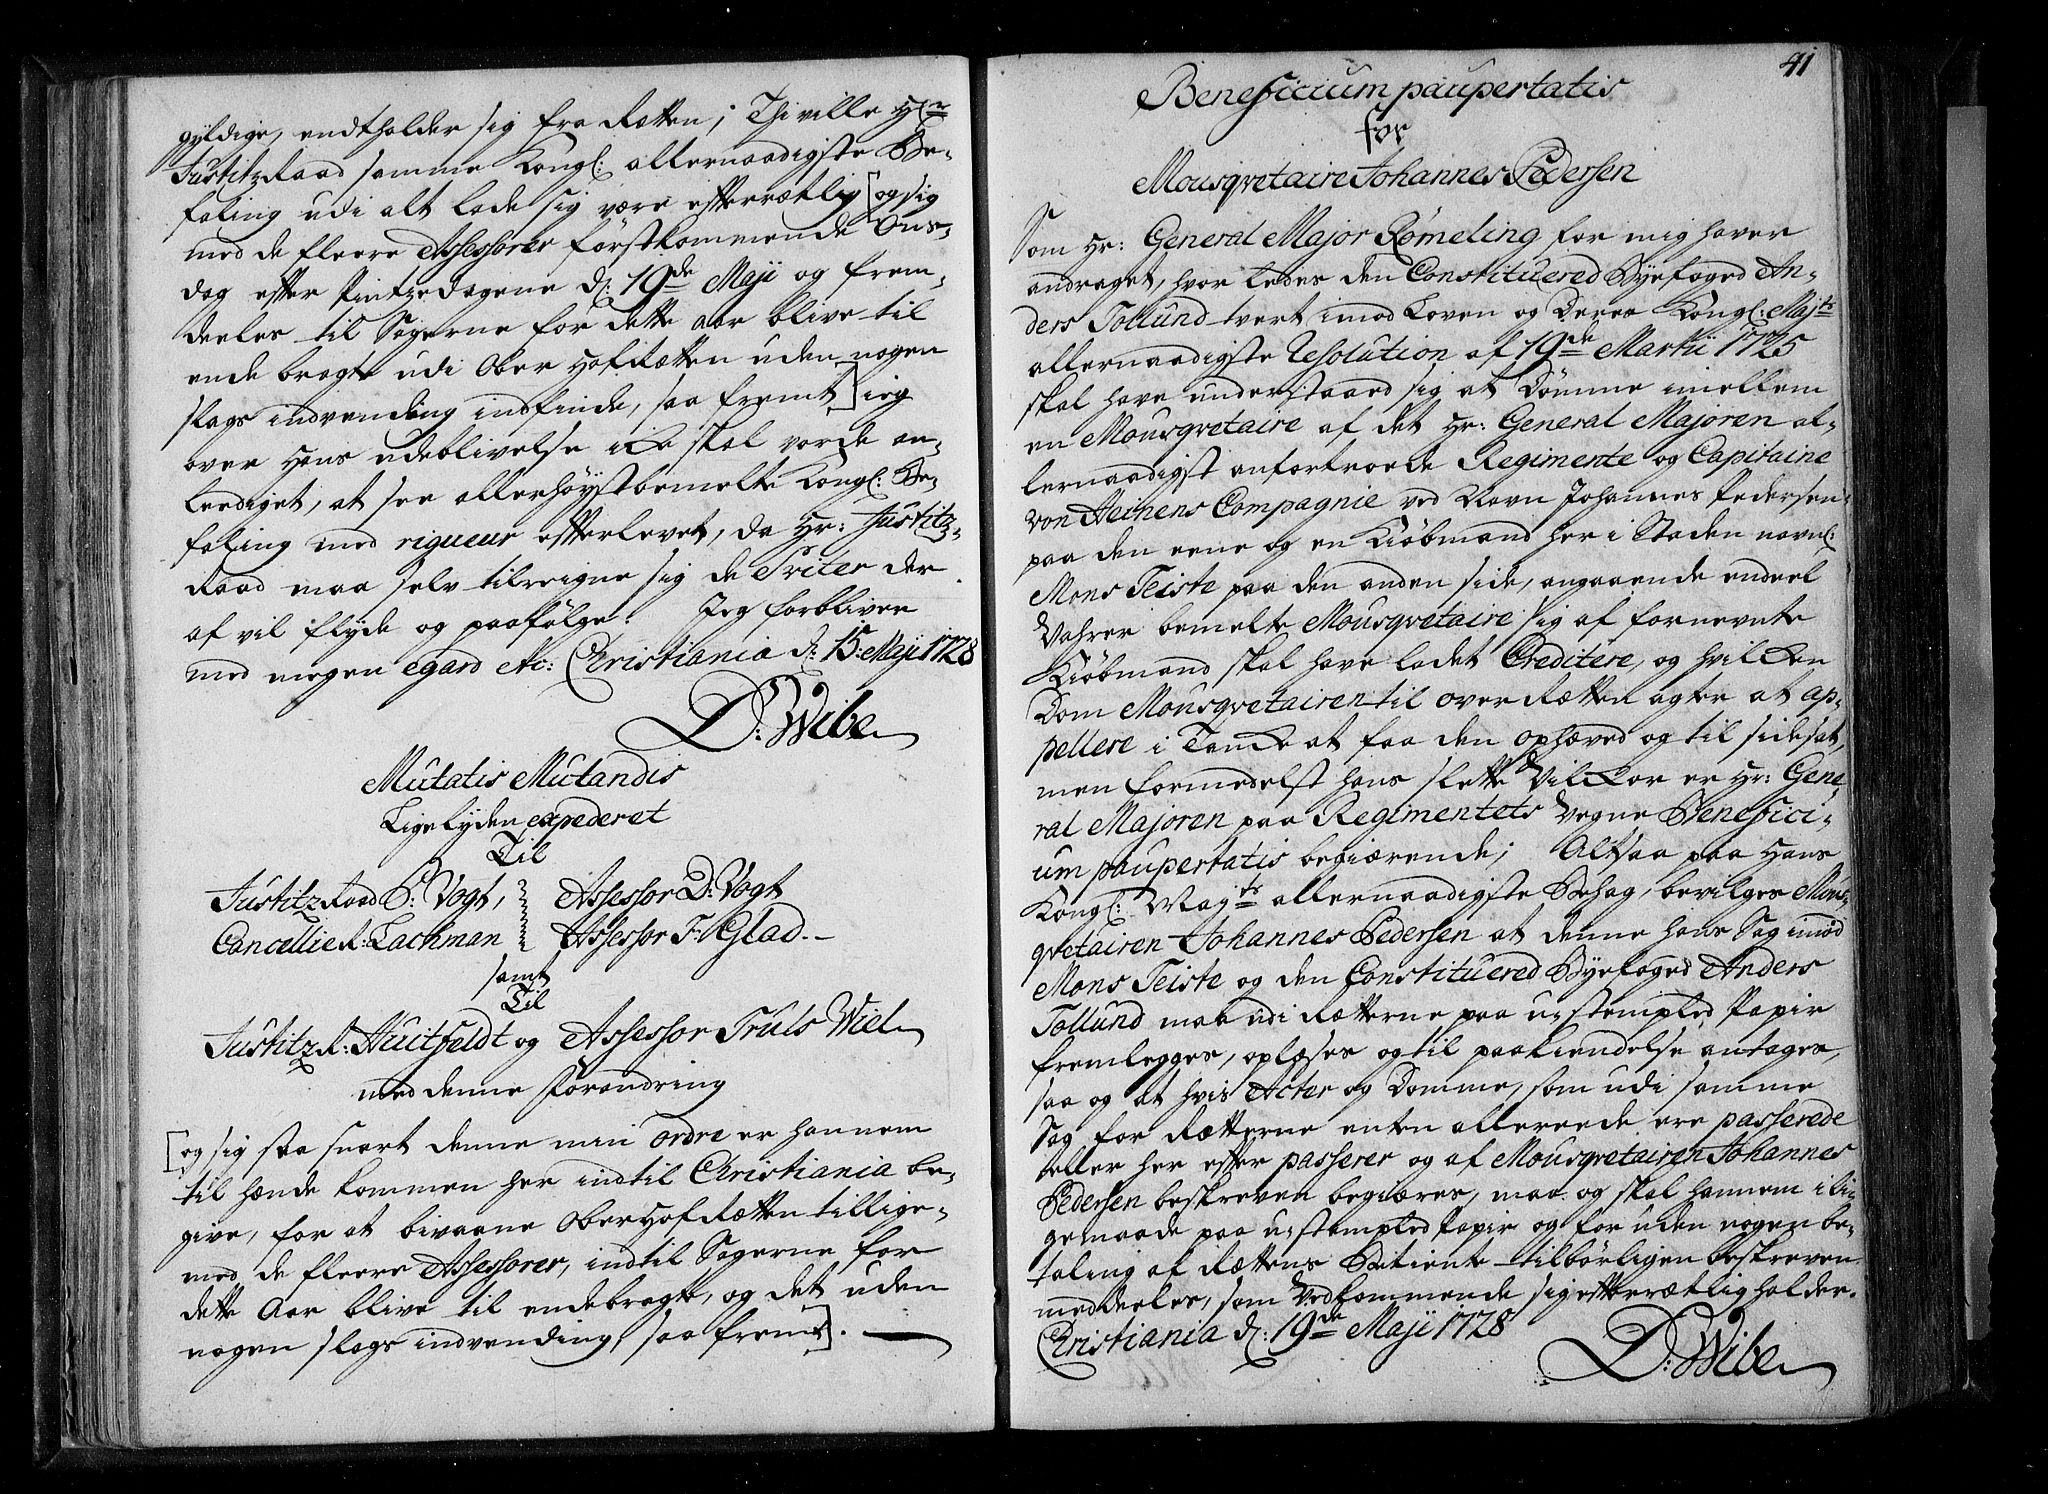 gyldige, endtholder sig fra Retten; Thi ville Hr
Justitz Raad samme Kongl: allernaadigste Be-
faling udi alt lade sig være efterrætlig [og sig
med de fleere Assessorer førstkommende Ons-
dag efter Pintzedagene d: 19de Maji og frem-
deeles til Sagerne for dette aar blive til
ende bragte udi Ober Hof Retten uden nogen
slags indvending indfinde, saa fremt] ieg
over Hans udeblivelse icke skal vorde an-
lediget, at see allerhøystbemelte Kongl: Be-
faling med rigueur efterlevet, da Hr: Justitz-
Raad maa selv tilreigne sig de Sviter der
af vil flyde og paafølge. Jeg forbliver
med megen egard etc: Christiania d: 15: Maji 1728
D: Wibe
Mutatis Mutandis
Ligelyden expederet
Til
Justitz Raad P: Vogt, Assessor D: Vogt
Cancellie R: Lachman Assessor F: Glad.
samt
Til
Justitz R: Huitfeldt og Assessor Truls Wiel
med denne Forandring
[og sig saa snart denne min ordre er hannem
til hænde kommen her indtil Christiania be-
give, for at bivaane Ober Hof Retten tillige-
med de fleere Assessorer, indtil Sagerne for
dette Aar blive til endebragte, og det uden
nogen slags indvending, saa fremt].
41
Beneficium paupertatis
for
Mousqvetaire Johannes Pedersen
Som Hr: General Major Rømeling for mig haver
andraget, hvorledes den Constituered Byefoged An-
ders Tollund tvert imod Loven og Deres Kongl: Majts
allernaadigste Resolution af 19de Martii 1725
skal have understaaed sig at Dømme imellem
en Mousqvetaire af det Hr: General Majoren al-
lernaadigst anfortroede Regimente og Capitaine
von Heinens Compagnie ved Navn Johannes Pedersen
paa den eene og en Kiøbmand her i Staden navnl:
Mons Teiste paa den anden side, angaaende endeel
Vahrer bemelte Mousqvetaire sig af fornevnte
Kiøbmand skal have ladet Creditere, og hvilken
Dom Mousqvetairen til overRetten agter at ap-
pellere i Tancke at faa den ophæved og til side sat,
men formedelst hans slette Vilckor er Hr: Gene-
ral Majoren paa Regimentets Vegne Benefici-
um paupertatis begiærende; Altsaa paa Hans
Kongl: Mayts allernaadigste Behag, bevilges Mous-
qvetairen Johannes Pedersen at denne hans Sag imod
Mons Teiste og den Constituered Byefoged Anders
Tollund maa udi Retterne paa ustempled Papir
fremlegges, oplæses og til paakiendelse antages,
saa og at hvis Acter og Domme, som udi samme
Sag for Retterne enten allereede ere passerede
eller her efter passerer og af Mousqvetairen Johannes
Pedersen beskreven begiæres, maa og skal hannem i li-
gemaade paa ustempled Papir og for uden nogen be-
taling af Rettens Betiente tilbørligen beskreven
meddeeles, som Vedkommende sig efterrætlig holder.
Christiania d: 19de Maji 1728
D: Wibe